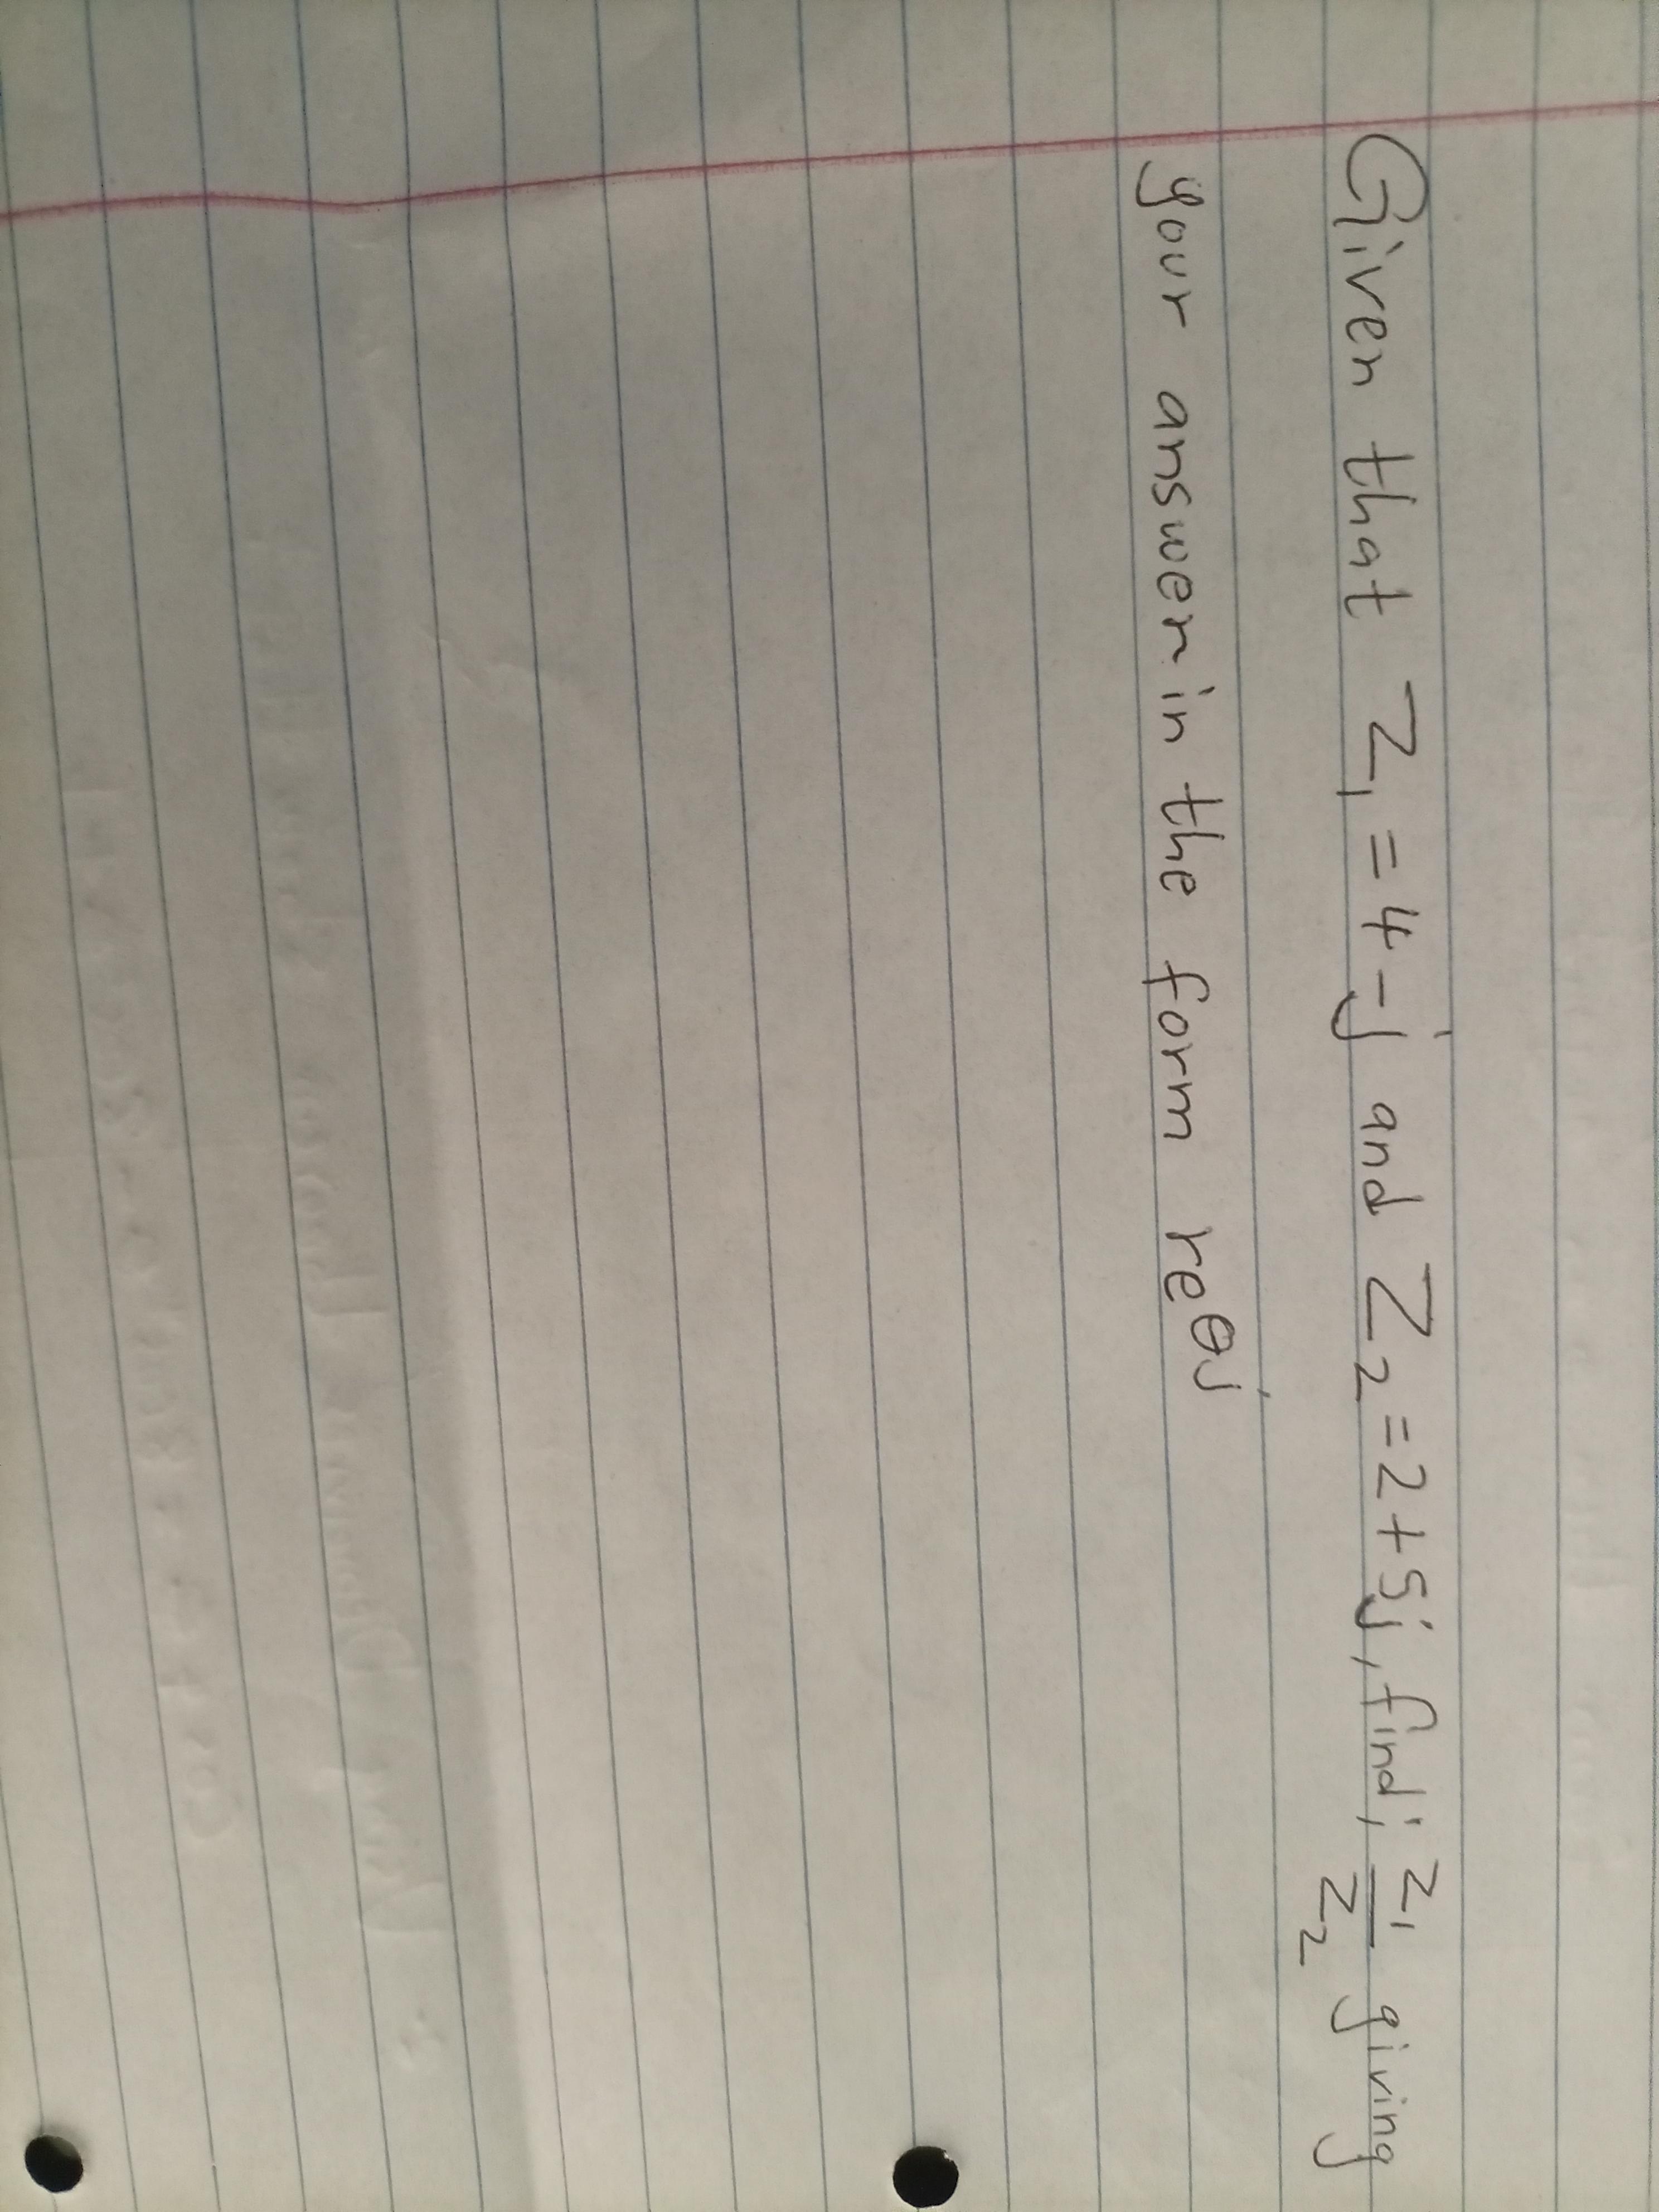 Given that Z₁ = 4 - j and Z₂ = 2 + 5j, find; Z₁/Z₂ giving
your answer in the form re^θj